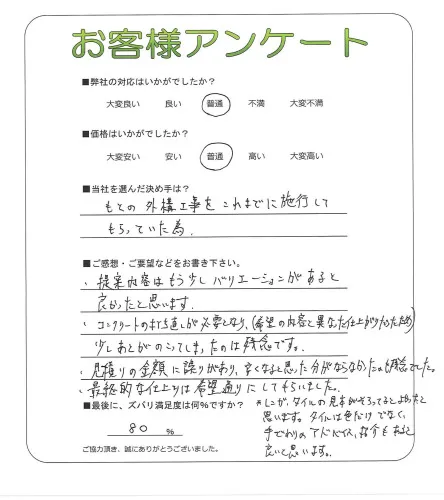 お客様アンケート
■弊社の対応はいかがでしたか?
大変良い 良い 普通 不満 大変不満
■価格はいかがでしたか?
大変安い 安い 普通 高い 大変高い
■当社を選んだ決め手は?
もとの 外構工事を これまでに施行して
もらっていた為.
■ご感想・ご要望などをお書き下さい。
・提案内容はもう少しバリエーションがあると
良かったと思います.
・コンクリートの打ち直しが必要となり、(希望の内容と異なった仕上がりだったため)
少しあとがのこってしまったのは残念です。
・見積りの金額に誤りがあり、安くなると思った分がならなかったのも残念でした。
・最終的な仕上りは希望通りにしてもらいました。
■最後に、ズバリ満足度は何%ですか?
80 %
ご協力頂き、誠にありがとうございました。
思います。タイルは色だけでなく、
手ざわりのアドバイス、紹介もあると
良いと思います。